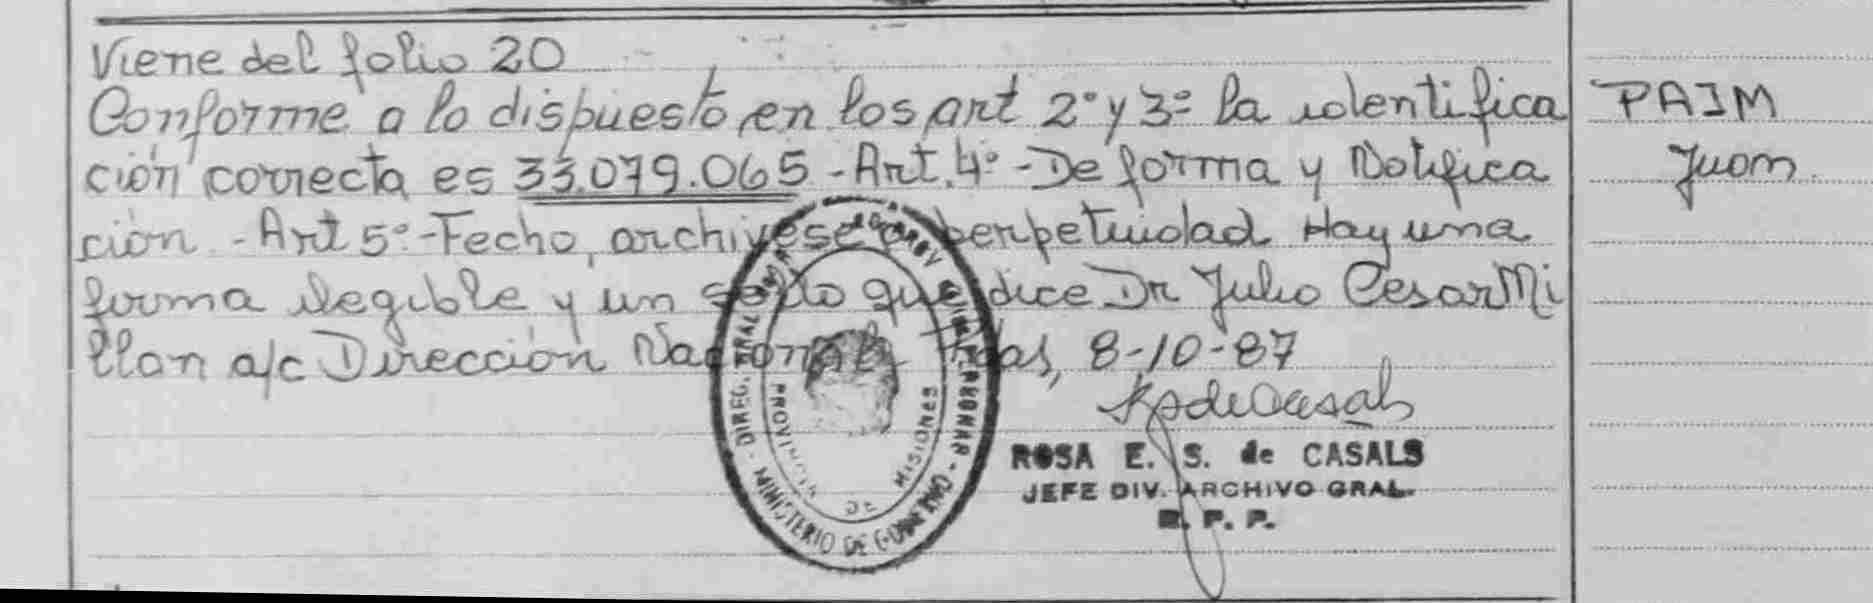 Viene del folio 20
Conforme a lo dispuesto en los art 2º y 3º la identifica
ción correcta es 33.079.065 - Art. 4º - De forma y Notifica
ción - Art 5º - Fecho, archívese a perpetuidad Hay una
firma ilegible y un sello que dice Dr Julio Cesar Mi
llan a/c Dirección Nacional Pdas, 8-10-87
PAIM
Juan
DIREC. GRAL
MINISTERIO DE GOBIERNO
PROVINCIA DE MISIONES
ROSA E. S. de CASALS
JEFE DIV. ARCHIVO GRAL.
R. P. P.